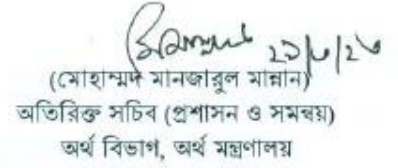 ২১/৬/২৬
(মোহাম্মদ মানজারুল মান্নান)
অতিরিক্ত সচিব (প্রশাসন ও সমন্বয়)
অর্থ বিভাগ, অর্থ মন্ত্রণালয়